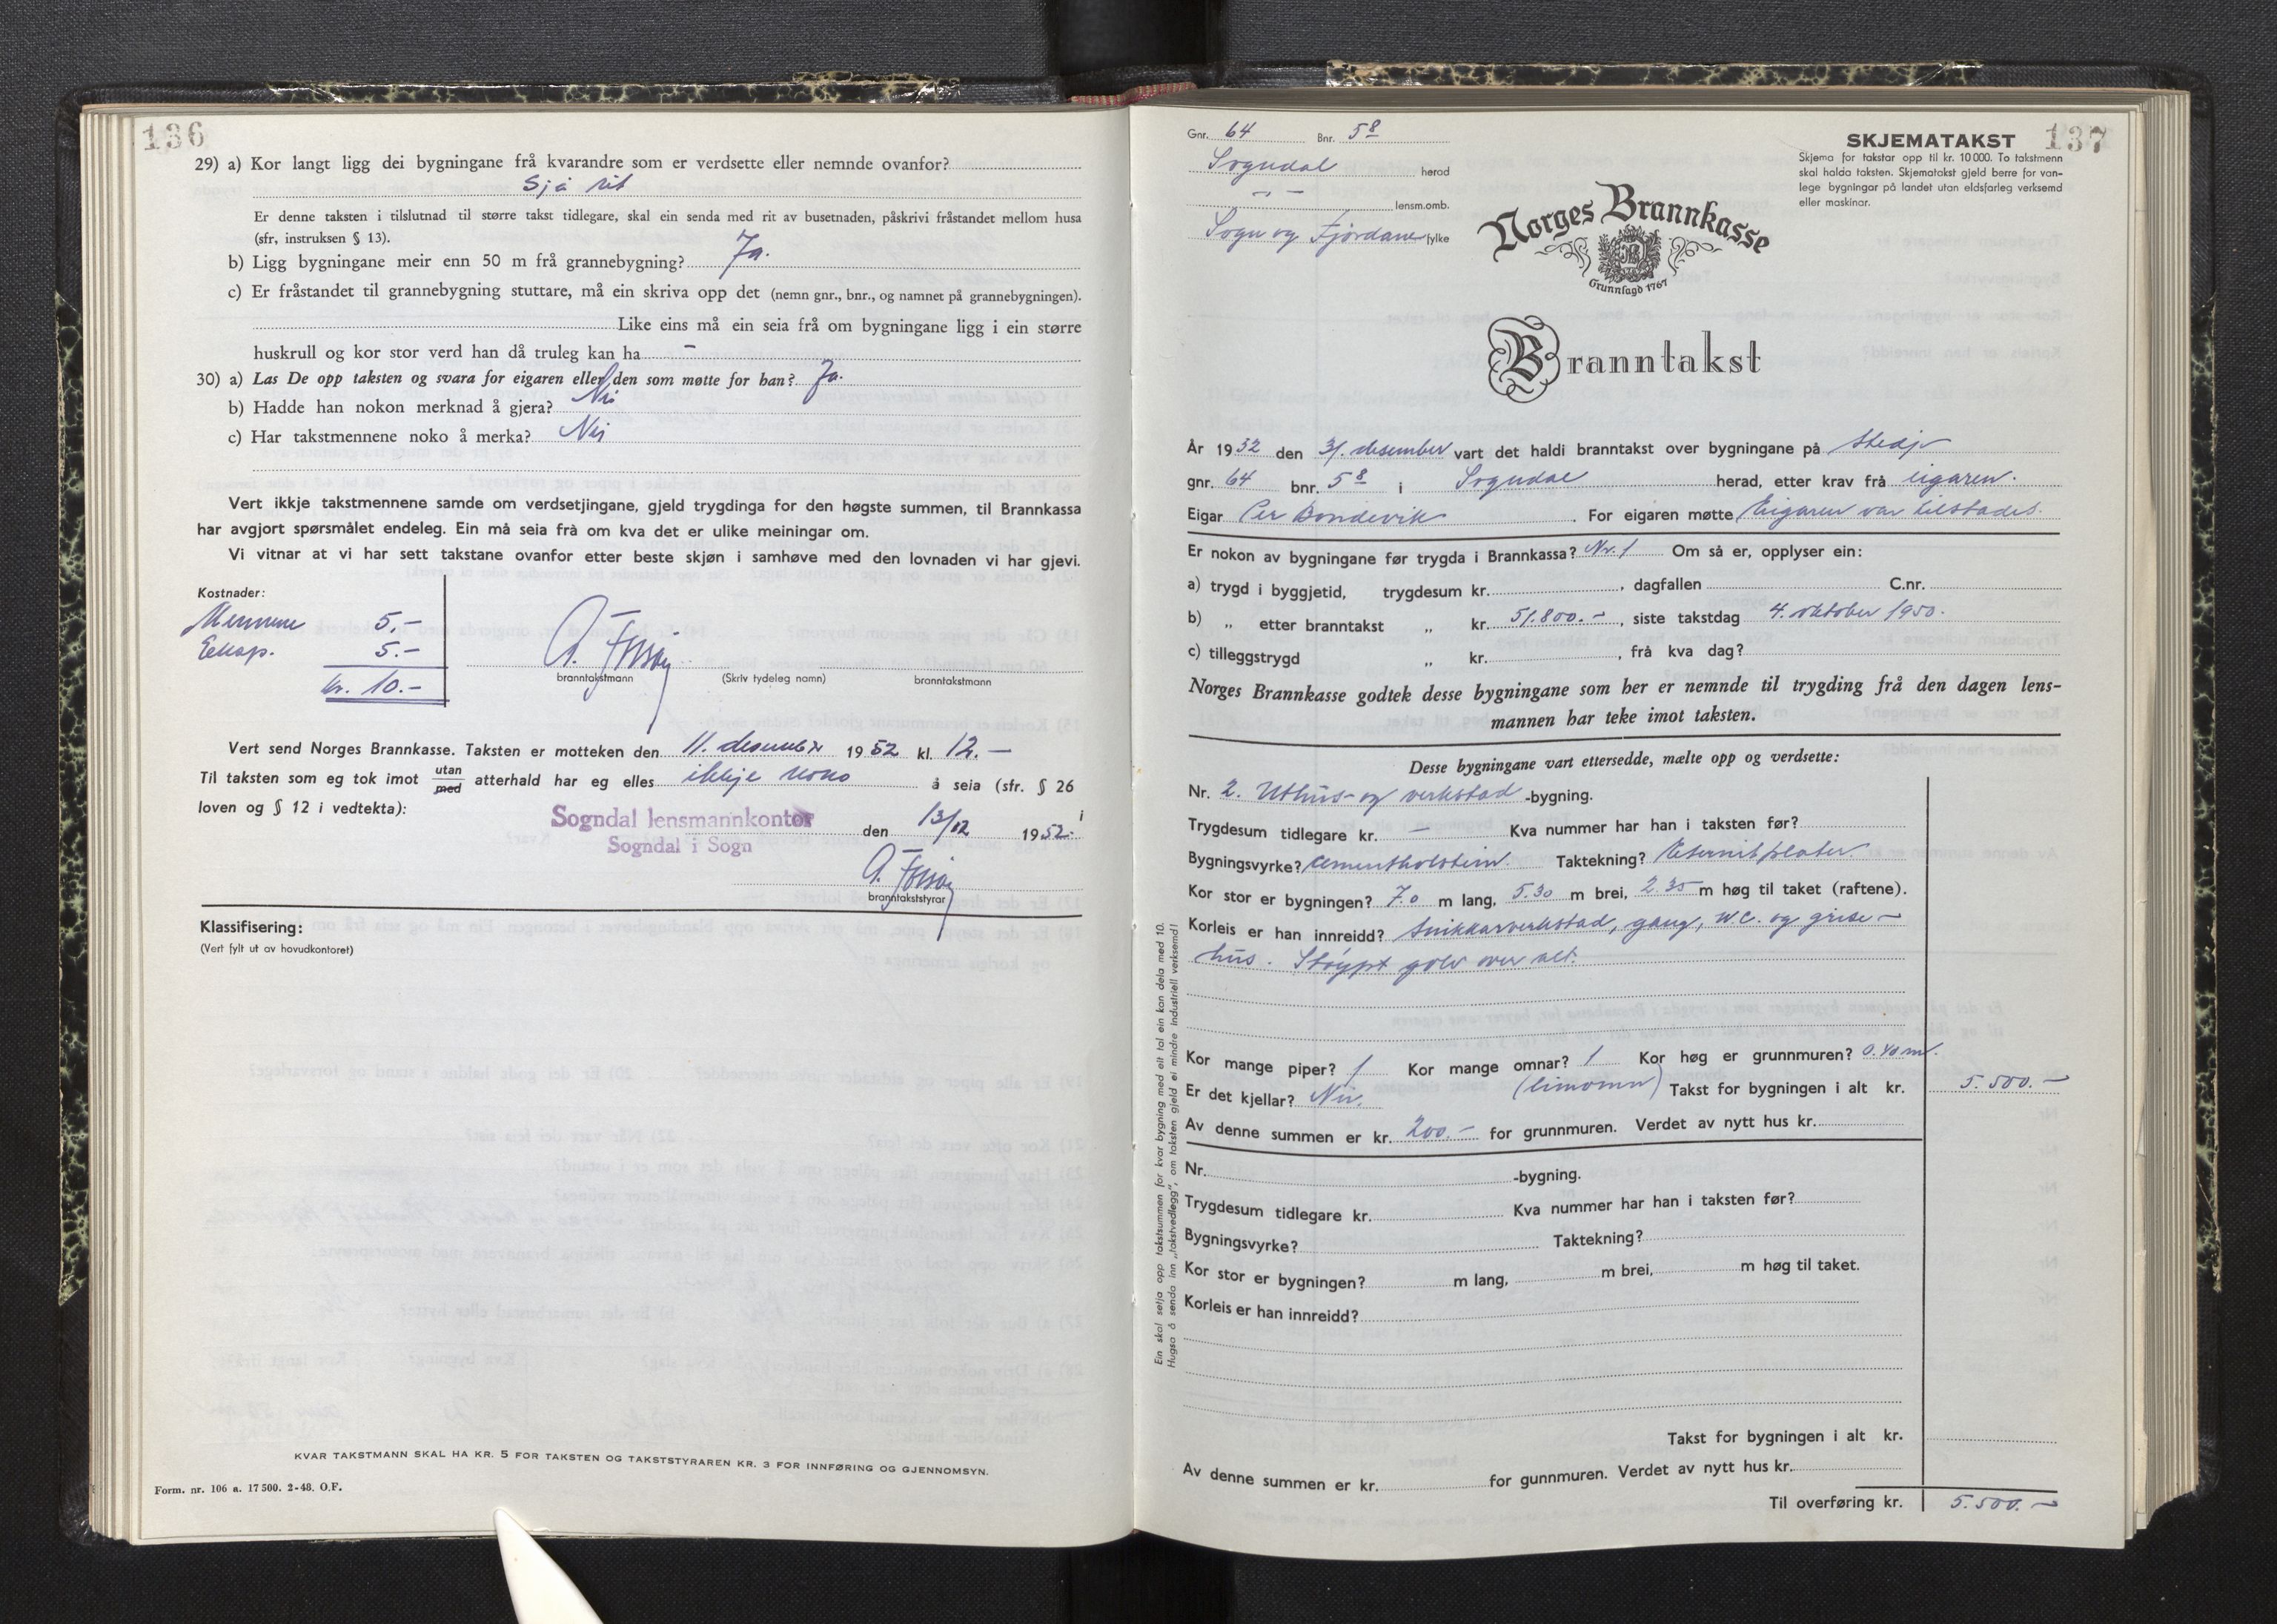 136
29) a) Kor langt ligg dei bygningane frå kvarandre som er verdsette eller nemnde ovanfor?
Sjå rit
Er denne taksten i tilslutnad til større takst tidlegare, skal ein senda med rit av busetnaden, påskrivi fråstandet mellom husa
(sfr, instruksen § 13).
b) Ligg bygningane meir enn 50 m frå grannebygning? Ja.
c) Er fråstandet til grannebygning stuttare, må ein skriva opp det (nemn gnr., bnr., og namnet på grannebygningen).
Like eins må ein seia frå om bygningane ligg i ein større
huskrull og kor stor verd han då truleg kan ha –
30) a) Las De opp taksten og svara for eigaren eller den som møtte for han? Ja.
b) Hadde han nokon merknad å gjera? Nei
c) Har takstmennene noko å merka? Nei
Vert ikkje takstmennene samde om verdsetjingane, gjeld trygdinga for den høgste summen, til Brannkassa
har avgjort spørsmålet endeleg. Ein må seia frå om kva det er ulike meiningar om.
Vi vitnar at vi har sett takstane ovanfor etter beste skjøn i samhøve med den lovnaden vi har gjevi.
Kostnader:
Mennene 5.–
Ekksp. 5.–
kr. 10.–
branntakstmann (Skriv tydeleg namn) branntakstmann
Vert send Norges Brannkasse. Taksten er motteken den 11. desember 1952 kl. 12.–
Til taksten som eg tok imot utan/med atterhald har eg elles ikkje noko å seia (sfr. § 26 i
loven og § 12 i vedtekta):
Sogndal lensmannkontor den 13/12 1952.
Sogndal i Sogn
branntakststyrar
Klassifisering:
(Vert fylt ut av hovudkontoret)
KVAR TAKSTMANN SKAL HA KR. 5 FOR TAKSTEN OG TAKSTSTYRAREN KR. 3 FOR INNFØRING OG GJENNOMSYN.
Form. nr. 106 a. 17 500. 2-48. O.F.
137
Gnr. 64 Bnr. 58
Sogndal herod
– – lensm.omb.
Sogn og Fjordane fylke
SKJEMATAKST
Skjema for takstar opp til kr. 10 000. To takstmenn
skal halda taksten. Skjematakst gjeld berre for van-
lege bygningar på landet utan eldsfarleg verksemd
eller maskinar.
Norges Brannkasse
Grunnlagd 1767
Branntakst
År 1952 den 3/. desember vart det haldi branntakst over bygningane på Stedje
gnr. 64 bnr. 58 i Sogndal herad, etter krav frå eigaren.
Eigar Per Bondevik. For eigaren møtte Eigaren var tilstades.
Er nokon av bygningane før trygda i Brannkassa? Nr. 1 Om så er, opplyser ein:
a) trygd i byggjetid, trygdesum kr. , dagfallen C.nr.
b) „ etter branntakst „ kr. 51.800.–, siste takstdag 4. oktober 1950.
c) tilleggstrygd „ kr. , frå kva dag?
Norges Brannkasse godtek desse bygningane som her er nemnde til trygding frå den dagen lens-
mannen har teke imot taksten.
Desse bygningane vart ettersedde, mælte opp og verdsette:
Nr. 2. Uthus- og verkstad -bygning.
Trygdesum tidlegare kr. – Kva nummer har han i taksten før?
Bygningsvyrke? Cementholstein. Taktekning? Eternitplater.
Kor stor er bygningen? 7.0 m lang, 5.30 m brei, 2.35 m høg til taket (raftene).
Korleis er han innreidd? Snikkarverkstad, gang, W.C. og grise-
hus. Støypt golv over alt.
Kor mange piper? 1 Kor mange omnar? 1 Kor høg er grunnmuren? 0.40 m.
Er det kjellar? Nei. (limomn) Takst for bygningen i alt kr. 5.500.–
Av denne summen er kr. 200.– for grunnmuren. Verdet av nytt hus kr.
Nr. -bygning.
Trygdesum tidlegare kr. Kva nummer har han i taksten før?
Bygningsvyrke? Taktekning?
Kor stor er bygningen? m lang, m brei, m høg til taket.
Korleis er han innreidd?
Takst for bygningen i alt kr.
Av denne summen er kr. for gunnmuren. Verdet av nytt hus kr.
Til overføring kr. 5.500.–
Ein skal setja opp takstsummen for kvar bygning med eit tal ein kan dela med 10.
Hugsa å senda inn „takstvedlegg", om taksten gjeld ei mindre industriell verksemd!